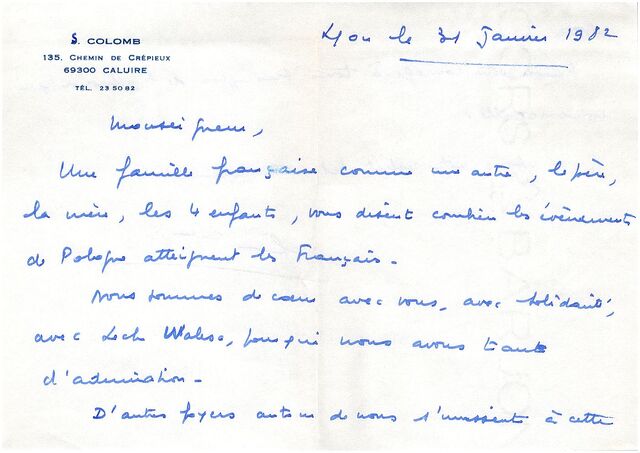 S. COLOMB
135, CHEMIN DE CRÉPIEUX
69300 CALUIRE
TÉL. 23 50 82
Lyon le 31 Janvier 1982
Monseigneur,
Une famille française comme une autre, le père,
la mère, les 4 enfants, vous disent combien les évènements
de Pologne atteignent les Français.
Nous sommes de cœur avec vous, avec Solidarité,
avec Lech Walesa, pour qui nous avons tant
d'admiration.
D'autres foyers autour de nous s'unissent à cette